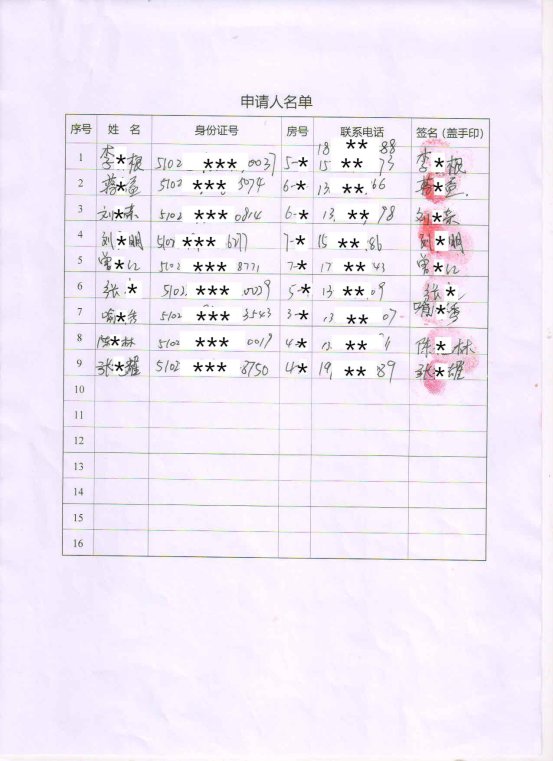 申请人名单
序号 姓 名 身份证号 房号 联系电话 签名（盖手印）
18 ** 88
1 李*根 5102 *** 0037 5-* 15 ** 73 李*根
2 蒋*孟 5102 *** 5074 6-* 13 ** 66 蒋*孟
3 刘*荣 5102 *** 0814 6-* 13 ** 98 刘*荣
4 刘*明 5102 *** 6277 7-* 15 ** 86 刘*明
5 曾*江 5102 *** 8771 7-* 17 ** 43 曾*江
6 张* 5102 *** 0029 5-* 13 ** 09 张*
7 喻*秀 5102 *** 3543 3-* 13 ** 07 喻*秀
8 陈*林 5102 *** 0019 4-* 13 ** 陈*林
9 张*耀 5102 *** 8750 4-* 19 ** 89 张*耀
10
11
12
13
14
15
16